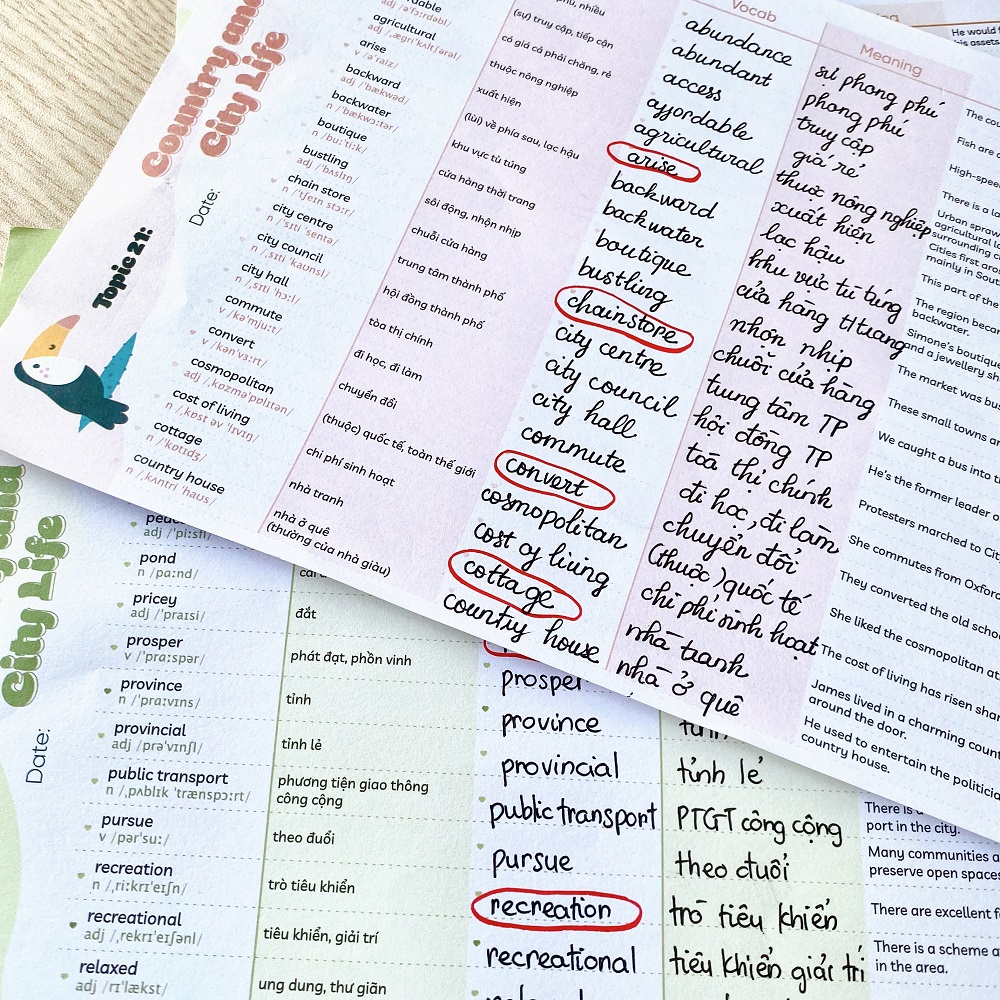 Country and
City Life
Date:
Topic 21:
agricultural
adj /ˌæɡrɪˈkʌltʃərəl/
arise
v /əˈraɪz/
backward
adj /ˈbækwəd/
backwater
n /ˈbækwɔːtər/
boutique
n /buːˈtiːk/
bustling
adj /ˈbʌslɪŋ/
chain store
n /ˈtʃeɪn stɔːr/
city centre
n /ˌsɪti ˈsentə/
city council
n /ˌsɪti ˈkaʊnsl/
city hall
n /ˌsɪti ˈhɔːl/
commute
v /kəˈmjuːt/
convert
v /kənˈvɜːrt/
cosmopolitan
adj /ˌkɒzməˈpɒlɪtən/
cost of living
n /ˌkɒst əv ˈlɪvɪŋ/
cottage
n /ˈkɒtɪdʒ/
country house
n /ˌkʌntri ˈhaʊs/
(sự) truy cập, tiếp cận
có giá cả phải chăng, rẻ
thuộc nông nghiệp
xuất hiện
(lùi) về phía sau, lạc hậu
khu vực tù túng
cửa hàng thời trang
sôi động, nhộn nhịp
chuỗi cửa hàng
trung tâm thành phố
hội đồng thành phố
tòa thị chính
đi học, đi làm
chuyển đổi
(thuộc) quốc tế, toàn thế giới
chi phí sinh hoạt
nhà tranh
nhà ở quê
(thường của nhà giàu)
Vocab
abundance
abundant
access
affordable
agricultural
arise
backward
backwater
boutique
bustling
chain store
city centre
city council
city hall
commute
convert
cosmopolitan
cost of living
cottage
country house
Meaning
sự phong phú
phong phú
truy cập
giá rẻ
thuộc nông nghiệp
xuất hiện
lạc hậu
khu vực tù túng
cửa hàng t/trang
nhộn nhịp
chuỗi cửa hàng
trung tâm TP
hội đồng TP
toà thị chính
đi học, đi làm
chuyển đổi
(thuộc) quốc tế
chi phí sinh hoạt
nhà tranh
nhà ở quê
He would
his assets
Fish are
High-speed
There is a
Urban
surrounding
Cities first
mainly in
This part of the
The region
backwater.
Simone's boutique
and a jewellery
The market was
These small towns
We caught a bus into
He's the former leader
Protesters marched to
She commutes from Oxford
They converted the old
She liked the cosmopolitan
The cost of living has risen
James lived in a charming
around the door.
He used to entertain the
country house.
City Life
Date:
pond
n /pɑːnd/
pricey
adj /ˈpraɪsi/
prosper
v /ˈprɑːspər/
province
n /ˈprɑːvɪns/
provincial
adj /prəˈvɪnʃl/
public transport
n /ˌpʌblɪk ˈtrænspɔːrt/
pursue
v /pərˈsuː/
recreation
n /ˌriːkrɪˈeɪʃn/
recreational
adj /ˌrekrɪˈeɪʃənl/
relaxed
adj /rɪˈlækst/
đắt
phát đạt, phồn vinh
tỉnh
tỉnh lẻ
phương tiện giao thông
công cộng
theo đuổi
trò tiêu khiển
tiêu khiển, giải trí
ung dung, thư giãn
prosper
province
provincial
public transport
pursue
recreation
recreational
tỉnh
tỉnh lẻ
PTGT công cộng
theo đuổi
trò tiêu khiển
tiêu khiển giải trí
There is a
port in the city.
Many communities
preserve open spaces
There are excellent
There is a scheme
in the area.